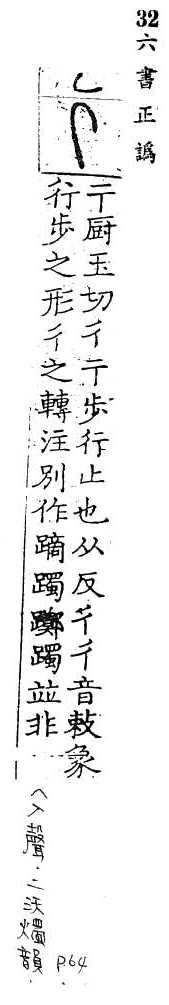 32 六書正譌
亍厨玉切彳亍步行止也从反彳彳音敕象
行步之形彳之轉注別作蹢躅躑躅並非
入聲·二沃燭韻 P.64